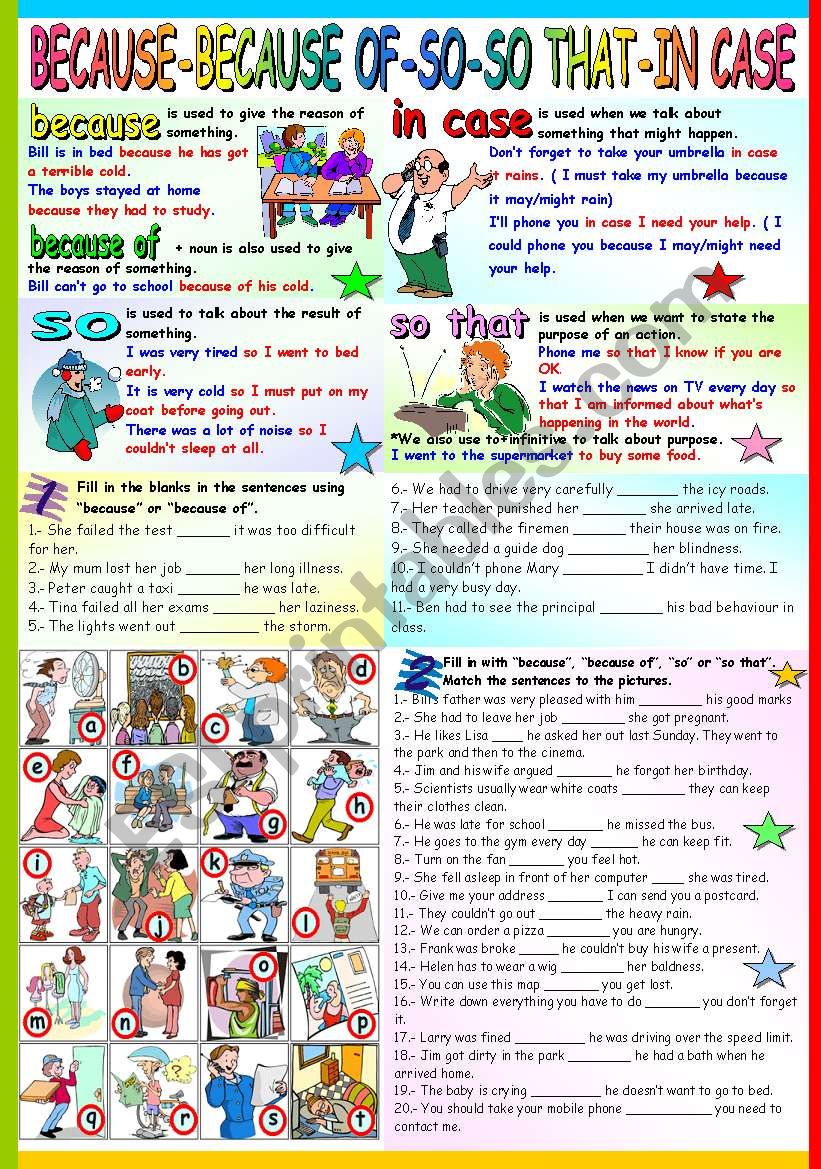 BECAUSE-BECAUSE OF-SO-SO THAT-IN CASE
because is used to give the reason of
something.
Bill is in bed because he has got
a terrible cold.
The boys stayed at home
because they had to study.
because of + noun is also used to give
the reason of something.
Bill can't go to school because of his cold.
in case is used when we talk about
something that might happen.
Don't forget to take your umbrella in case
it rains. ( I must take my umbrella because
it may/might rain)
I'll phone you in case I need your help. ( I
could phone you because I may/might need
your help.
so is used to talk about the result of
something.
I was very tired so I went to bed
early.
It is very cold so I must put on my
coat before going out.
There was a lot of noise so I
couldn't sleep at all.
so that is used when we want to state the
purpose of an action.
Phone me so that I know if you are
OK.
I watch the news on TV every day so
that I am informed about what's
happening in the world.
*We also use to+infinitive to talk about purpose.
I went to the supermarket to buy some food.
1 Fill in the blanks in the sentences using
"because" or "because of".
1.- She failed the test ______ it was too difficult
for her.
2.- My mum lost her job ______ her long illness.
3.- Peter caught a taxi ______ he was late.
4.- Tina failed all her exams _______ her laziness.
5.- The lights went out _________ the storm.
6.- We had to drive very carefully _______ the icy roads.
7.- Her teacher punished her _______ she arrived late.
8.- They called the firemen ______ their house was on fire.
9.- She needed a guide dog _________ her blindness.
10.- I couldn't phone Mary _________ I didn't have time. I
had a very busy day.
11.- Ben had to see the principal _______ his bad behaviour in
class.
a
b
c
d
e
f
g
h
i
j
k
l
m
n
o
p
q
r
s
t
2 Fill in with "because", "because of", "so" or "so that".
Match the sentences to the pictures.
1.- Bill's father was very pleased with him ________ his good marks
2.- She had to leave her job ________ she got pregnant.
3.- He likes Lisa ____ he asked her out last Sunday. They went to
the park and then to the cinema.
4.- Jim and his wife argued _______ he forgot her birthday.
5.- Scientists usually wear white coats ________ they can keep
their clothes clean.
6.- He was late for school _______ he missed the bus.
7.- He goes to the gym every day ______ he can keep fit.
8.- Turn on the fan _______ you feel hot.
9.- She fell asleep in front of her computer ____ she was tired.
10.- Give me your address _______ I can send you a postcard.
11.- They couldn't go out ________ the heavy rain.
12.- We can order a pizza ________ you are hungry.
13.- Frank was broke _____ he couldn't buy his wife a present.
14.- Helen has to wear a wig ________ her baldness.
15.- You can use this map _______ you get lost.
16.- Write down everything you have to do _______ you don't forget
it.
17.- Larry was fined _________ he was driving over the speed limit.
18.- Jim got dirty in the park ________ he had a bath when he
arrived home.
19.- The baby is crying __________ he doesn't want to go to bed.
20.- You should take your mobile phone ___________ you need to
contact me.
ESLprintables.com